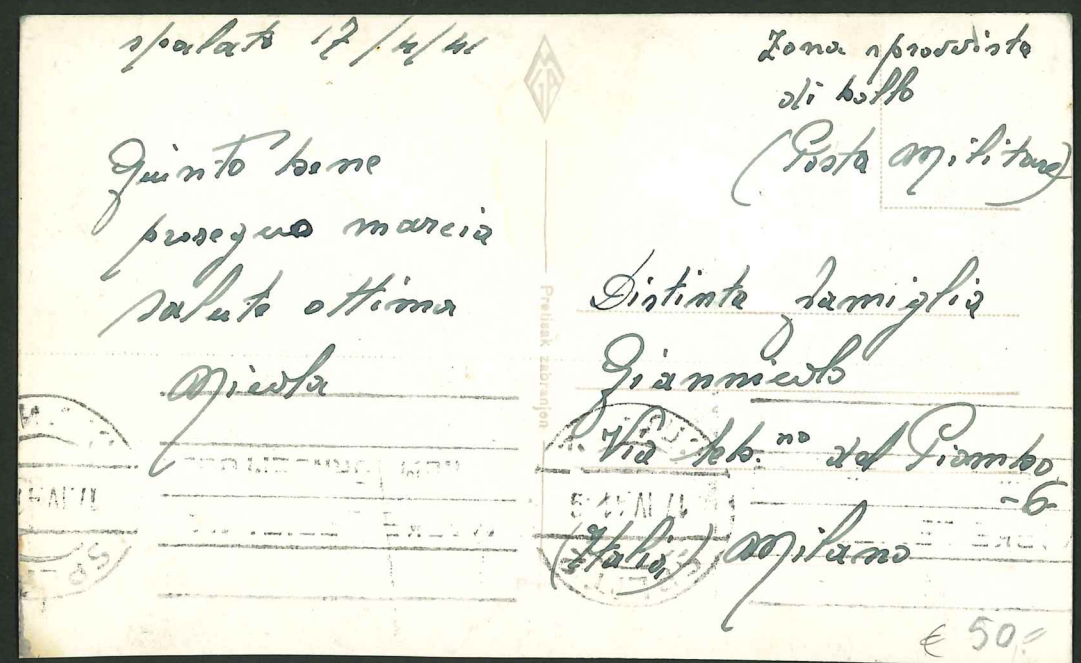 Spalato 17/4/41
Giunto bene
proseguo marcia
salute ottima
Nicola
MGA
Pretisak zabranjen
Zona sprovvista
di bollo
(Posta Militare)
Distinta famiglia
Via Feb.no del Piombo
-6-
(Italia) Milano
17 IV 41
SPLIT
€ 50,=